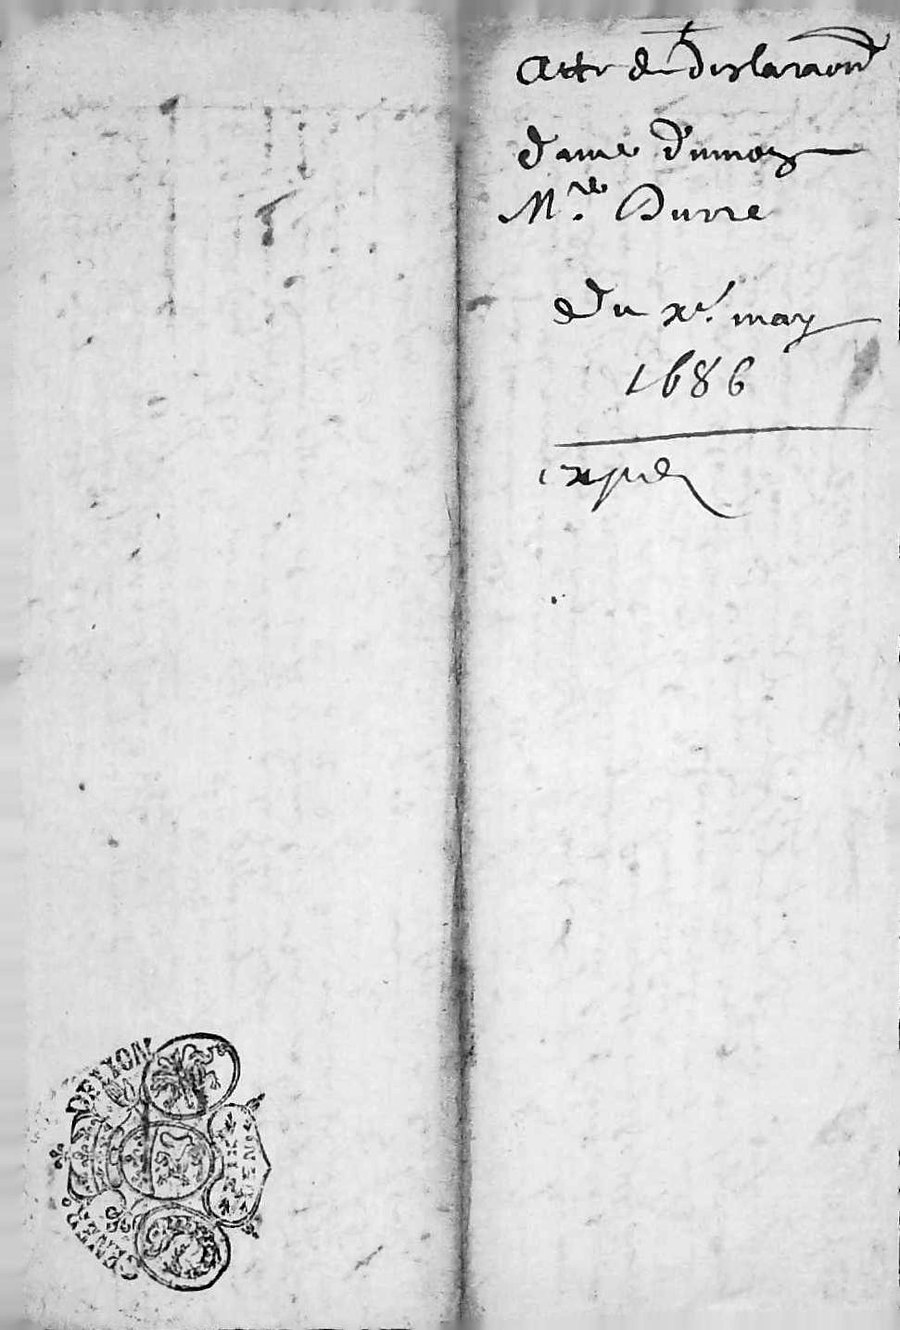 Acte de Declaraon
dame dumoy
Mre. Burre
du xe. may
1686
exped
GENER. DE LYON
SIX
DEN.